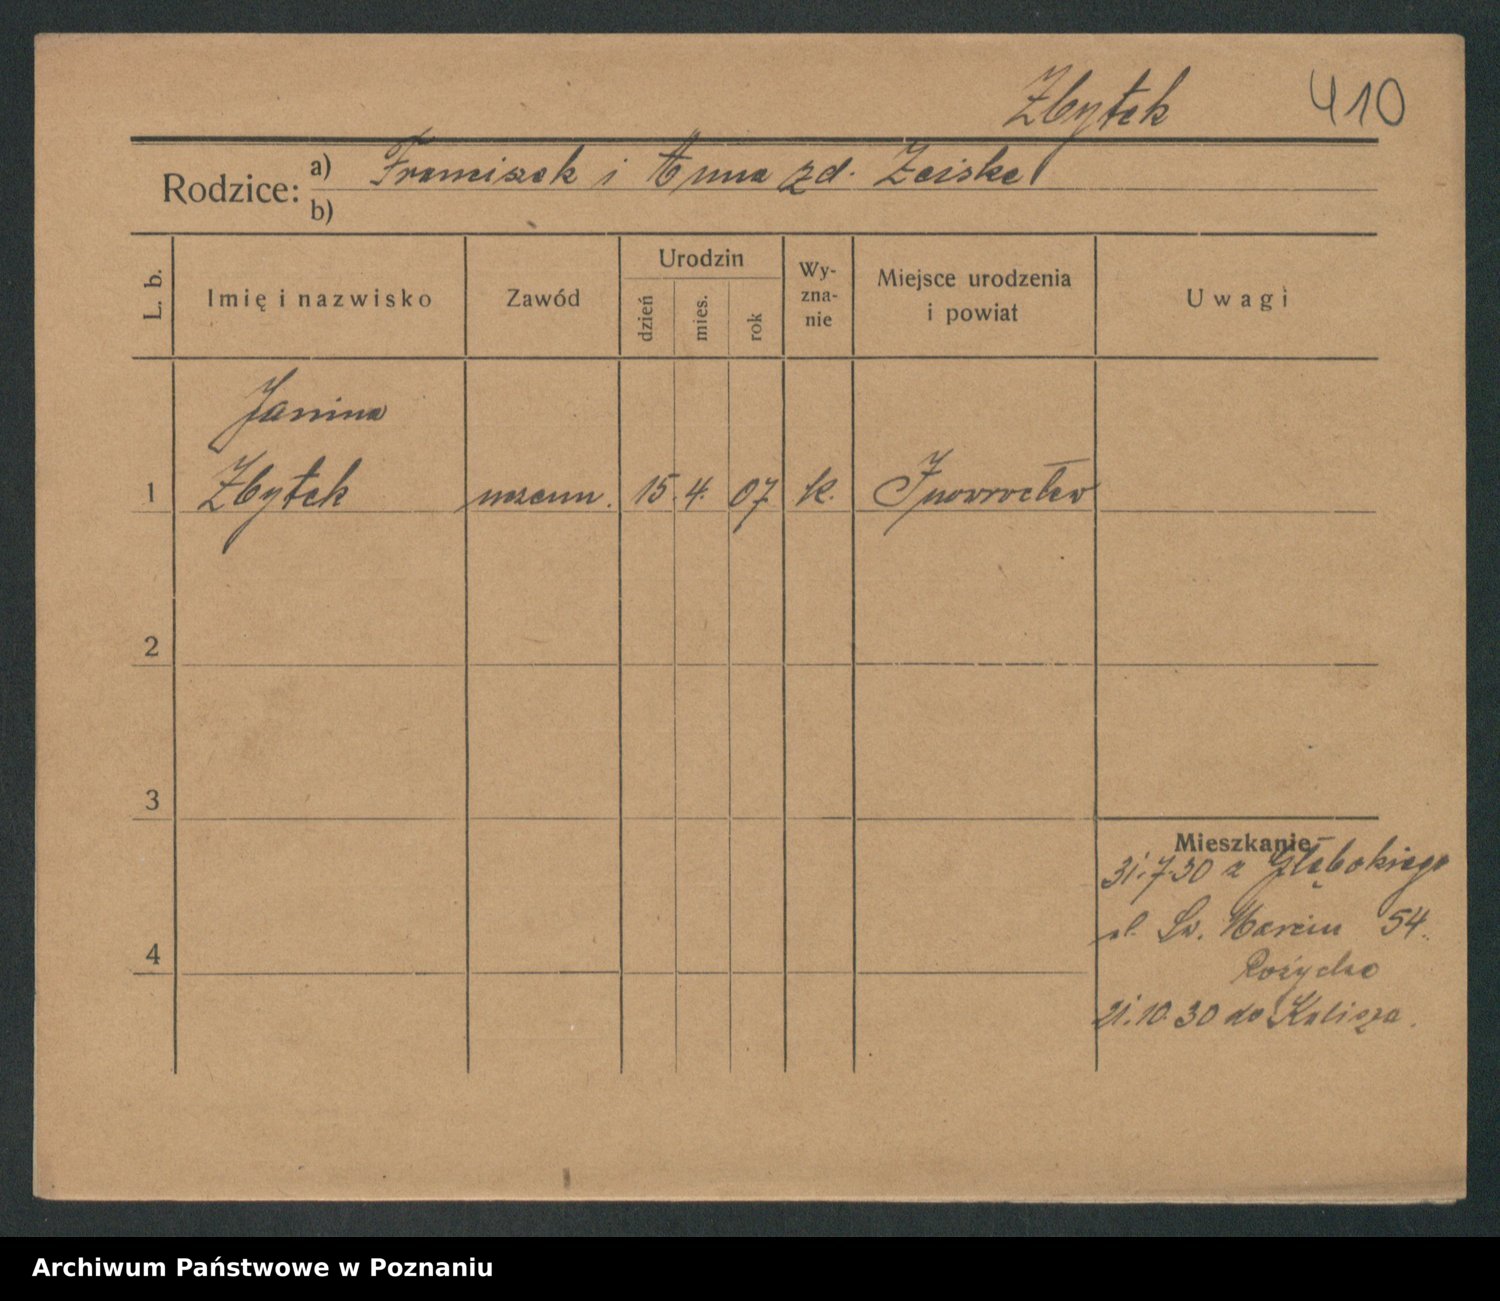 Zbytek 410
Rodzice: a) Franciszek i Anna zd. Zeiske
b)
L. b. Imię i nazwisko Zawód Urodzin dzień mies. rok Wyznanie Miejsce urodzenia i powiat Uwagi
Janina
1 Zbytek uczenn. 15. 4. 07. k. Inowrocław
2
3
Mieszkanie
31.7.30 z Głębokiego
4 ul. Św. Marcin 54.
21.10.30 do Kalisza.
Archiwum Państwowe w Poznaniu